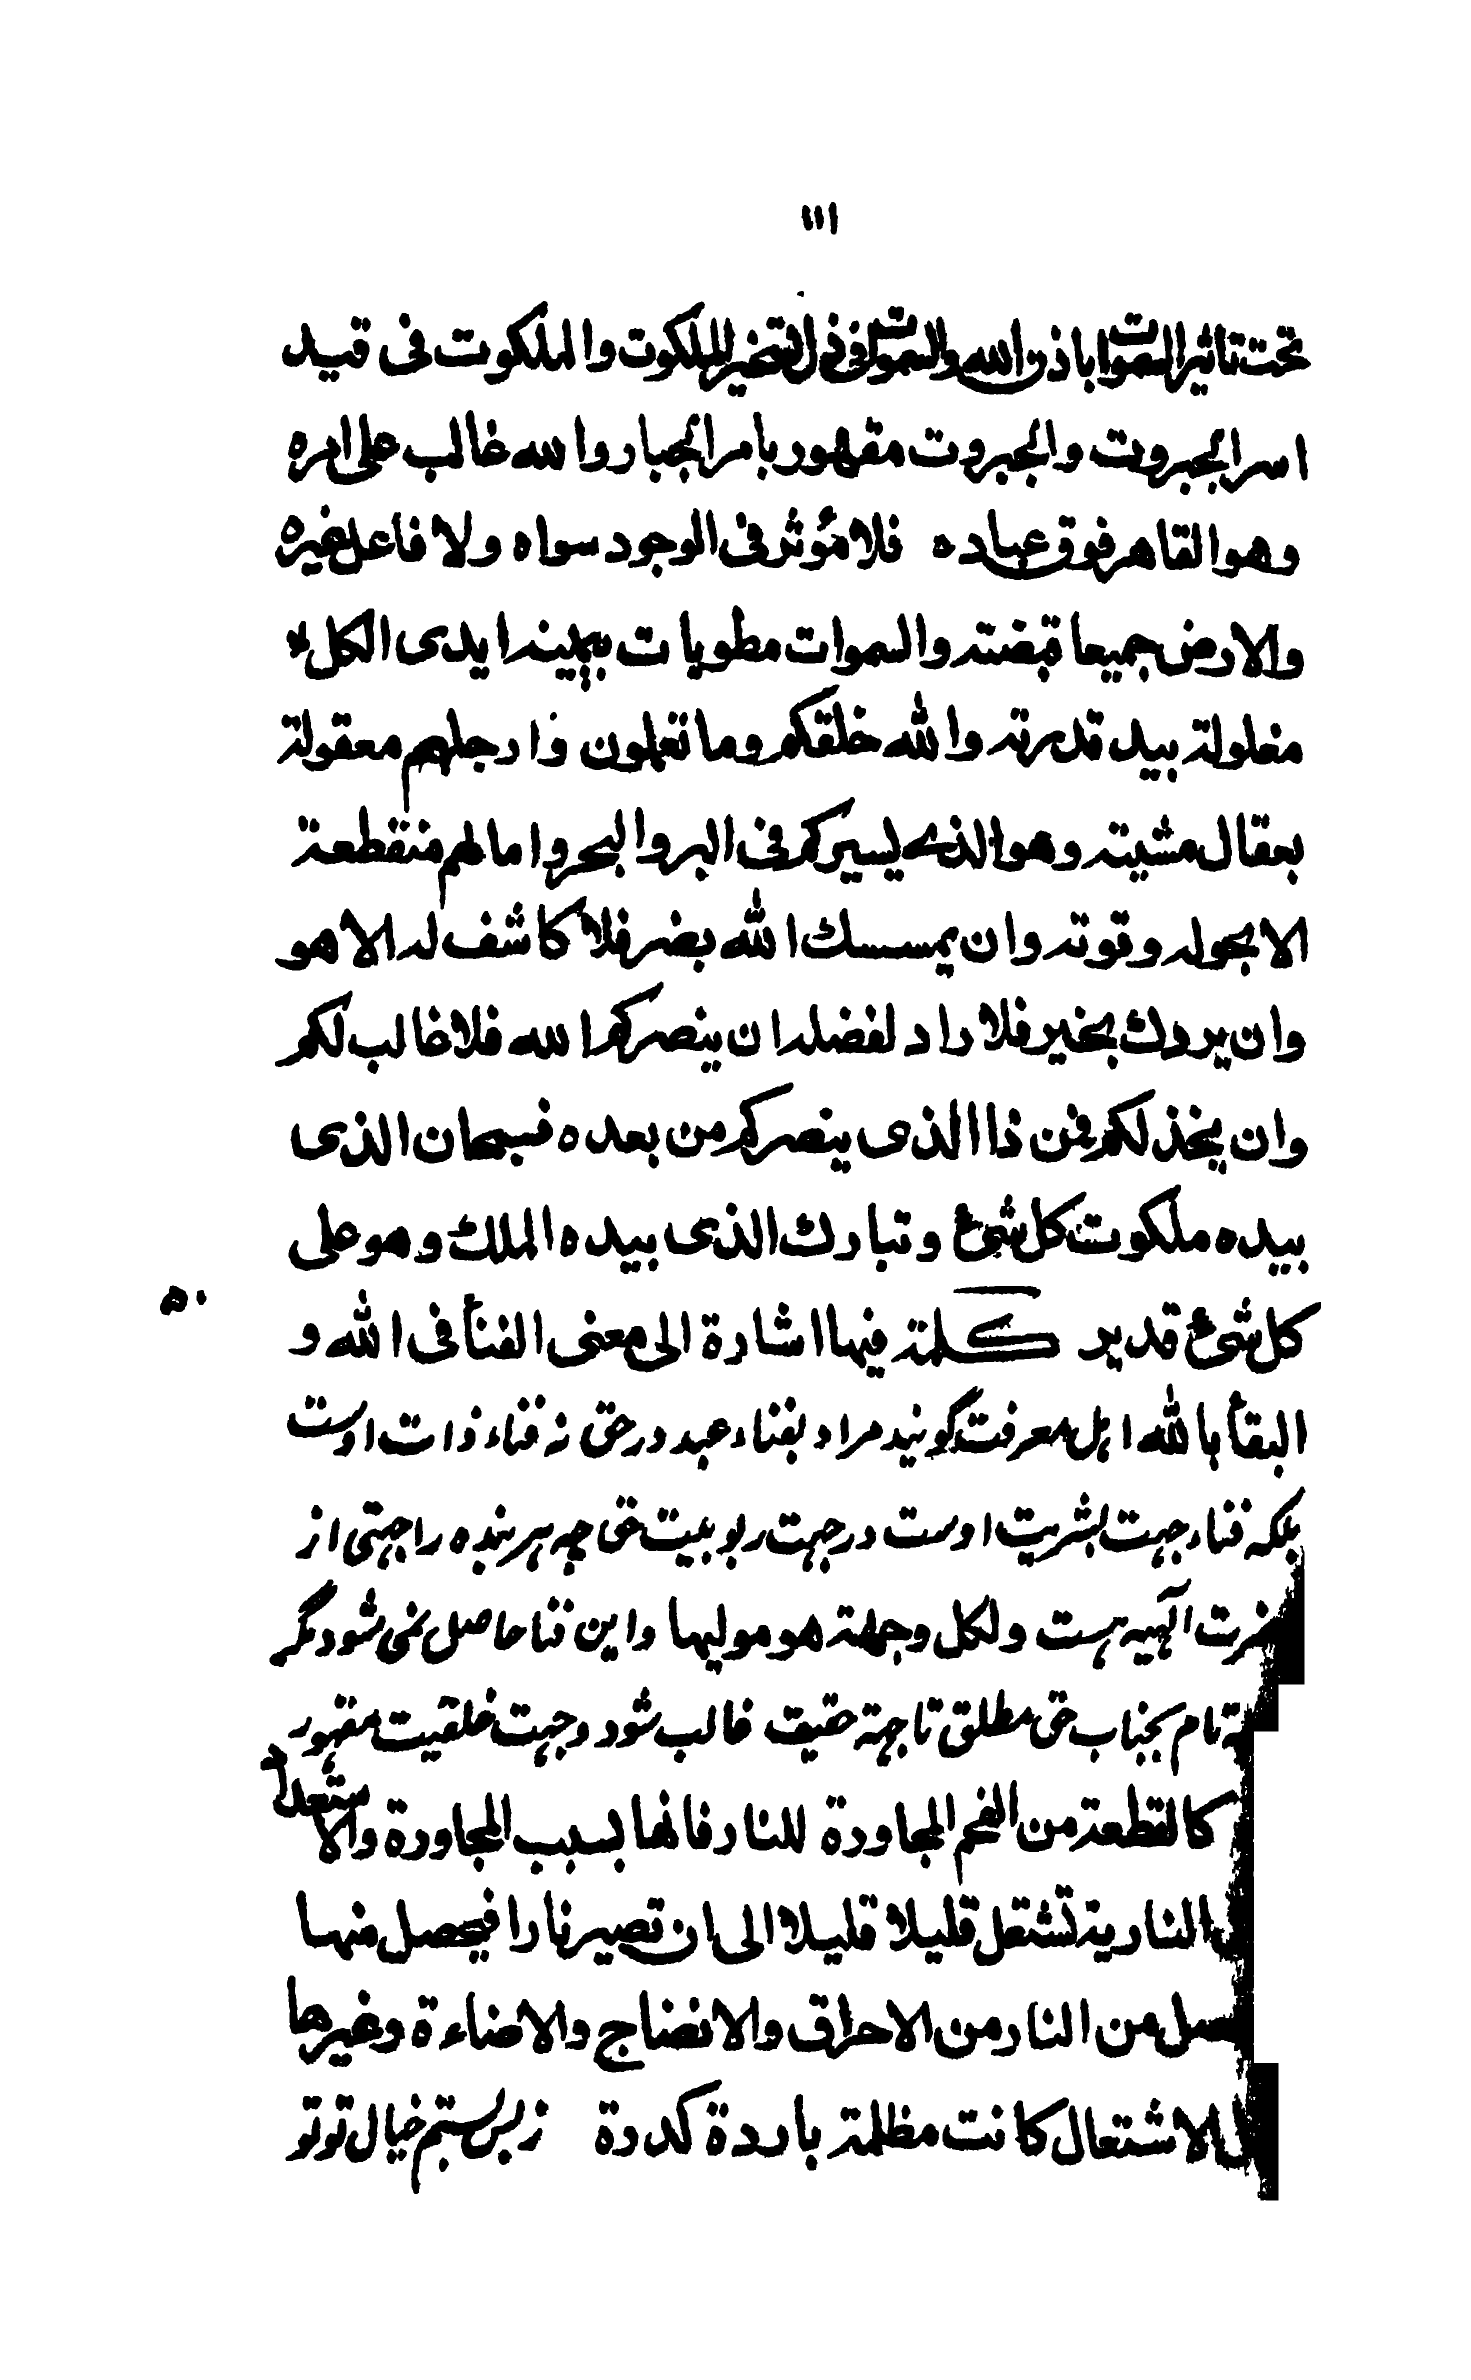 ١١١
تحت تاثير السموات باذن الله والسموات فى ذل التسخير للملكوت والملكوت فى قيد
اسر الجبروت والجبروت مقهور بامر الجبار والله غالب على امره
وهو القاهر فوق عباده فلا مؤثر فى الوجود سواه ولا فاعل غيره
والارض جميعا قبضته والسموات مطويات بيمينه ايدى الكل
مغلولة بيد قدرته والله خلقكم وما تعلمون وارجلهم معقولة
بعقال مشيته وهو الذى يسيركم فى البر والبحر وامالهم منقطعة
الا بحوله وقوته وان يمسسك الله بضر فلا كاشف له الا هو
وان يردك بخير فلا راد لفضله ان ينصركم الله فلا غالب لكم
وان يخذلكم فمن ذا الذى ينصركم من بعده فسبحان الذى
بيده ملكوت كل شئ وتبارك الذى بيده الملك وهو على
كل شئ قدير كلمة فيها اشارة الى معنى الفنأ فى الله و
٥٠
البقأ بالله اهل معرفت گويند مراد بفناء عبد در حق نه فناء ذات اوست
بلكه فناء جهت بشريت اوست در جهت ربوبيت حق چه هر بنده را جهتى از
حضرت الهيه هست ولكل وجهة هو موليها واين فنا حاصل نمى شود مگر
تام بجناب حق مطلق تا جهة حقيقت غالب شود وجهت خلقيت مقهور
كالقطعة من الفحم المجاورة للنار فانها بسبب المجاورة والاستعداد
النارية تشتعل قليلا قليلا الى ان تصير نارا فيحصل منها
من النار من الاحراق والانضاج والاضاءة وغيرها
الاشتعال كانت مظلمة باردة كدرة ز بس بستم خيال تو تو